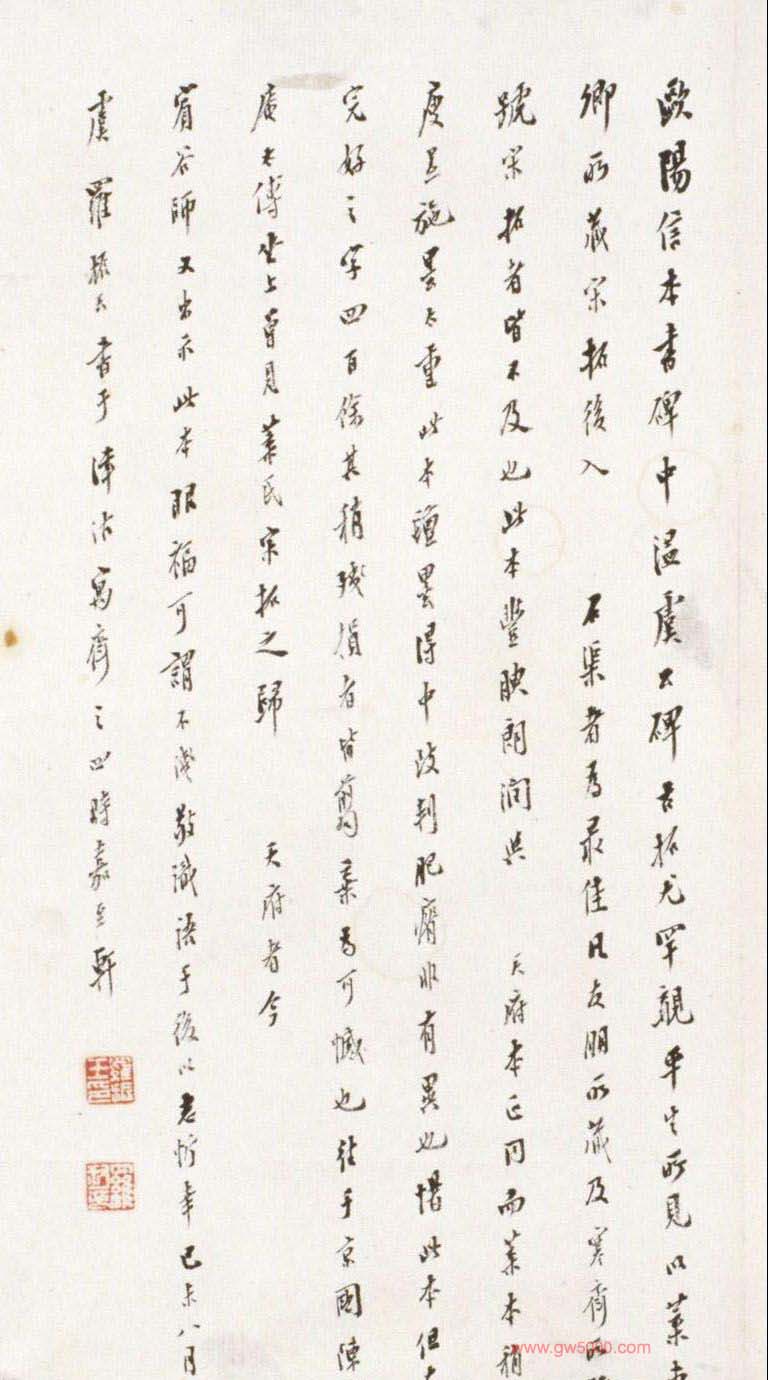 歐陽信本書碑中溫虞公碑古拓尤罕覯平生所見以葉
卿所藏宋拓後入 石渠者為最佳凡友朋所藏及寒齋所
號宋拓者皆不及也此本豐腴朗潤與 天府本正同而葉本稍
度其施墨太重此本氈墨得中故判肥瘠非有異也惜此本但
完好之字四百餘其稍殘損者皆翦棄為可憾也往于京國陳
庵太傅坐上曾見葉氏宋拓之歸 天府者今
師又出示此本眼福可謂不淺敬識語于後以志忻幸己未八月
虞羅振玉書于津沽寓齋之四時嘉至軒
www.gw5000.com